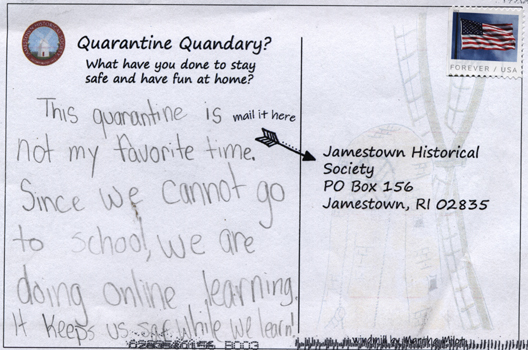 Quarantine Quandary?
What have you done to stay
safe and have fun at home?
This quarantine is
not my favorite time.
Since we cannot go
to school, we are
doing online learning.
It keeps us safe while we learn!
mail it here
Jamestown Historical
Society
PO Box 156
Jamestown, RI 02835
FOREVER / USA
windmill by